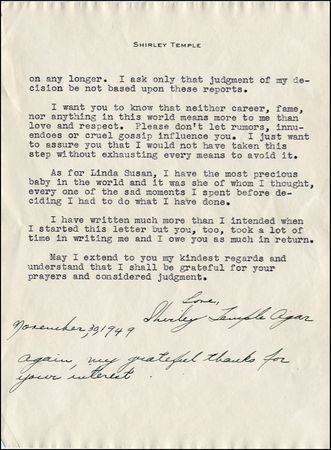 SHIRLEY TEMPLE
on any longer. I ask only that judgment of my de-
cision be not based upon these reports.
I want you to know that neither career, fame,
nor anything in this world means more to me than
love and respect. Please don't let rumors, innu-
endoes or cruel gossip influence you. I just want
to assure you that I would not have taken this
step without exhausting every means to avoid it.
As for Linda Susan, I have the most precious
baby in the world and it was she of whom I thought,
every one of the sad moments I spent before de-
ciding I had to do what I have done.
I have written much more than I intended when
I started this letter but you, too, took a lot of
time in writing me and I owe you as much in return.
May I extend to you my kindest regards and
understand that I shall be grateful for your
prayers and considered judgment.
Love,
Shirley Temple Agar
November, 30, 1949
Again, my grateful thanks for
your interest.